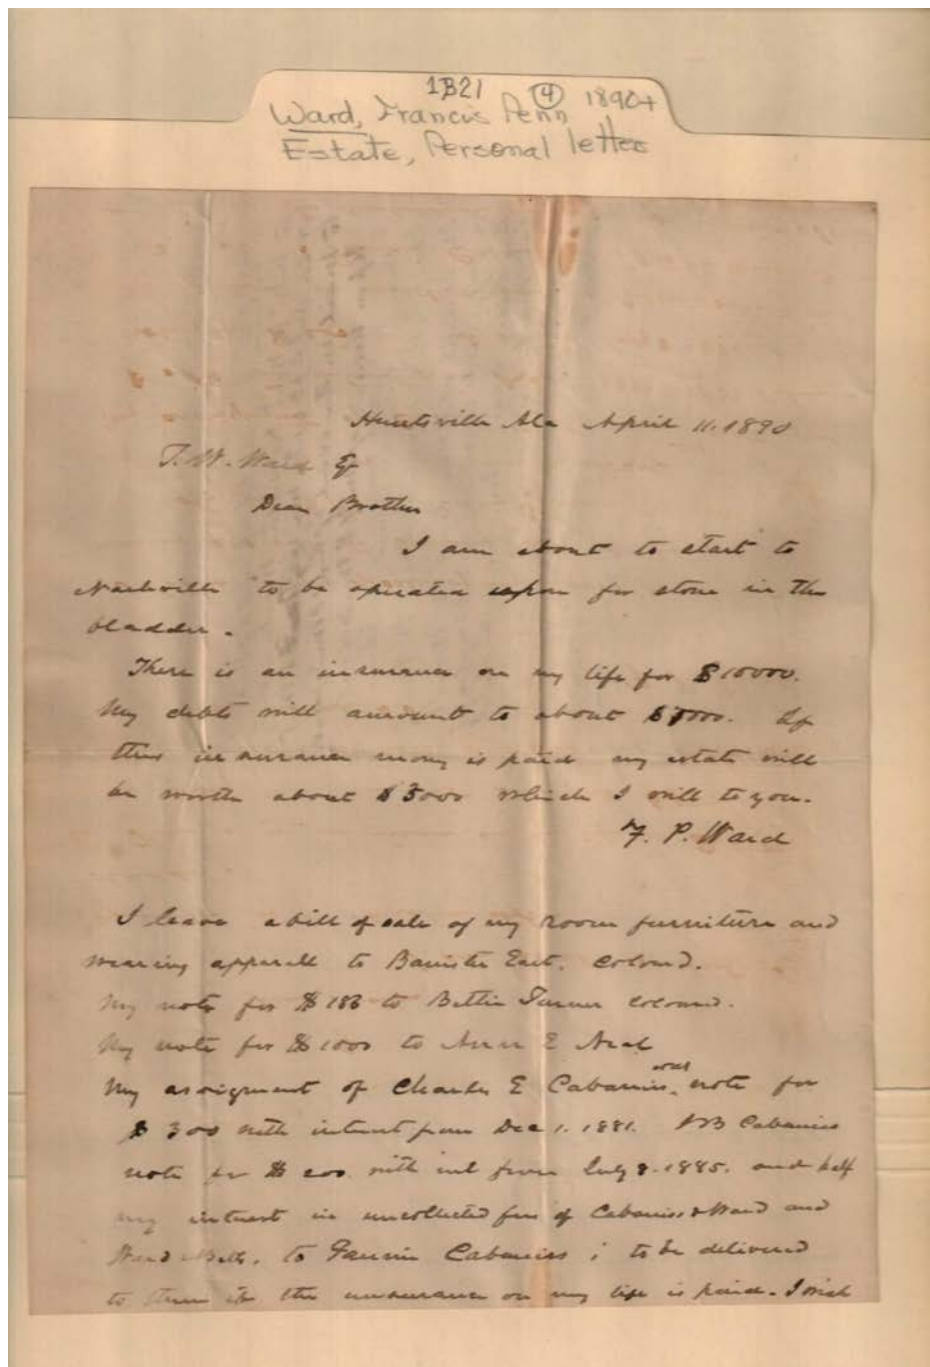 1B21 (4) 1890+
Ward, Francis Penn
Estate, Personal letter
Huntsville Ala April 11. 1890
T. W. Ward Esq
Dear Brother
I am about to start to
Nashville to be operated upon for stone in the
bladder.
There is an insurance on my life for $10000.
My debts will amount to about $ If
this insurance money is paid my estate will
be worth about $3000 which I will to you.
F. P. Ward
I leave a bill of sale of my room furniture and
wearing apparell to Banister East. colored.
My note for $186 to Bettie Turner colored.
My note for $1000 to Ann E Neal
My assignment of Charles E Cabaniss note for
$300 with interest from Dec 1. 1881. Cabaniss
note for $200 with int from July 8. 1885. and half
my interest in uncollected fees of Cabaniss & Ward and
Ward & Betts. to Fannie Cabaniss ; to be delivered
to them if the insurance on my life is paid. I wish